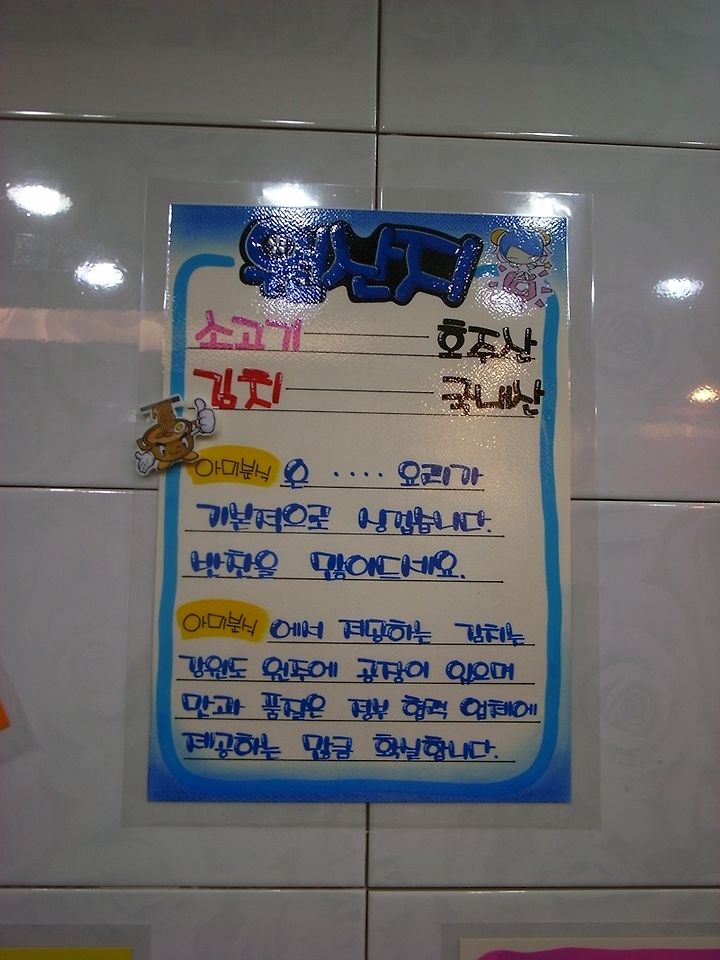 원산지
소고기 호주산
김치 국내산
아미분식 은 .... 요리가
기본적으로 싱겁습니다.
반찬을 많이드세요.
아미분식 에서 제공하는 김치는
강원도 원주에 공장이 있으며
맛과 품질은 정부 협력 업체에
제공하는 만큼 확실합니다.